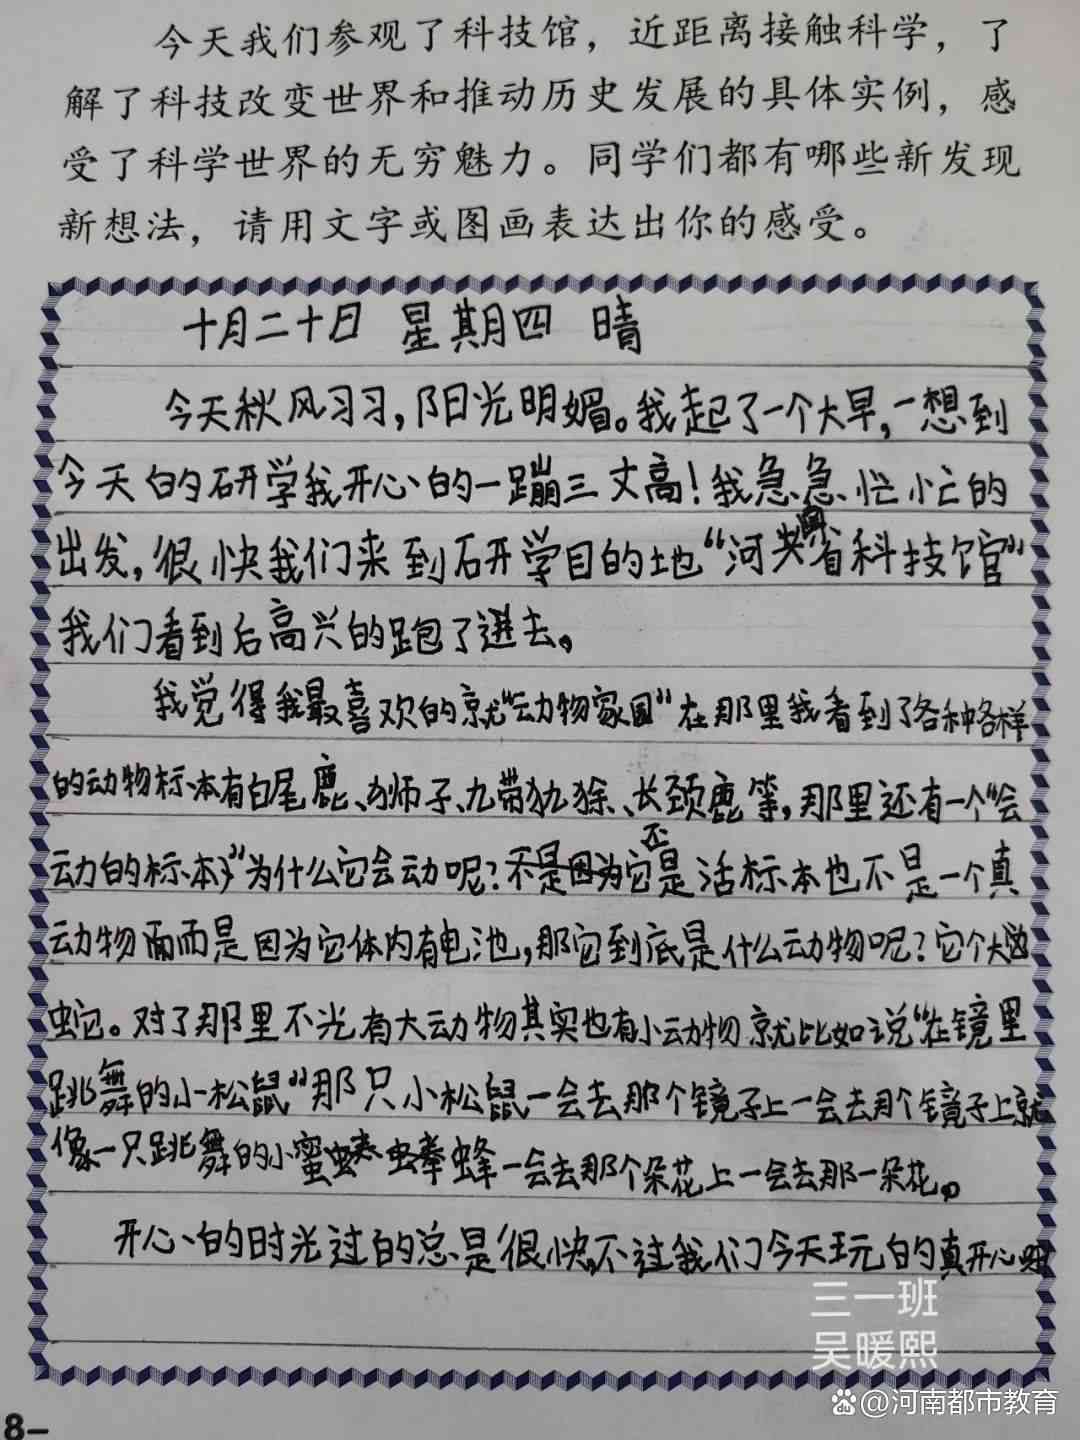 今天我们参观了科技馆，近距离接触科学，了
解了科技改变世界和推动历史发展的具体实例，感
受了科学世界的无穷魅力。同学们都有哪些新发现
新想法，请用文字或图画表达出你的感受。
十月二十日 星期四 晴
今天秋风习习，阳光明媚。我起了一个大早，一想到
今天的研学我开心的一蹦三丈高！我急急忙忙的
出发，很快我们来到研学目的地“河南省科技馆”
我们看到后高兴的跑了进去。
我觉得我最喜欢的就“动物家园”在那里我看到了各种各样
的动物标本有白尾鹿、狮子、九带犰狳、长颈鹿等，那里还有一个“会
动的标本”为什么它会动呢？它不是活标本也不是一个真
动物而是因为它体内有电池，那它到底是什么动物呢？它个大
蛇。对了那里不光有大动物其实也有小动物就比如说“在镜里
跳舞的小松鼠”那只小松鼠一会去那个镜子上一会去那个镜子上就
像一只跳舞的小蜜蜂一会去那个朵花上一会去那一朵花。
开心的时光过的总是很快，不过我们今天玩的真开心呀
三一班
吴暖熙
@河南都市教育
8-